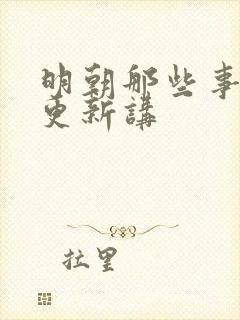 明朝那些事
更新講
拉里